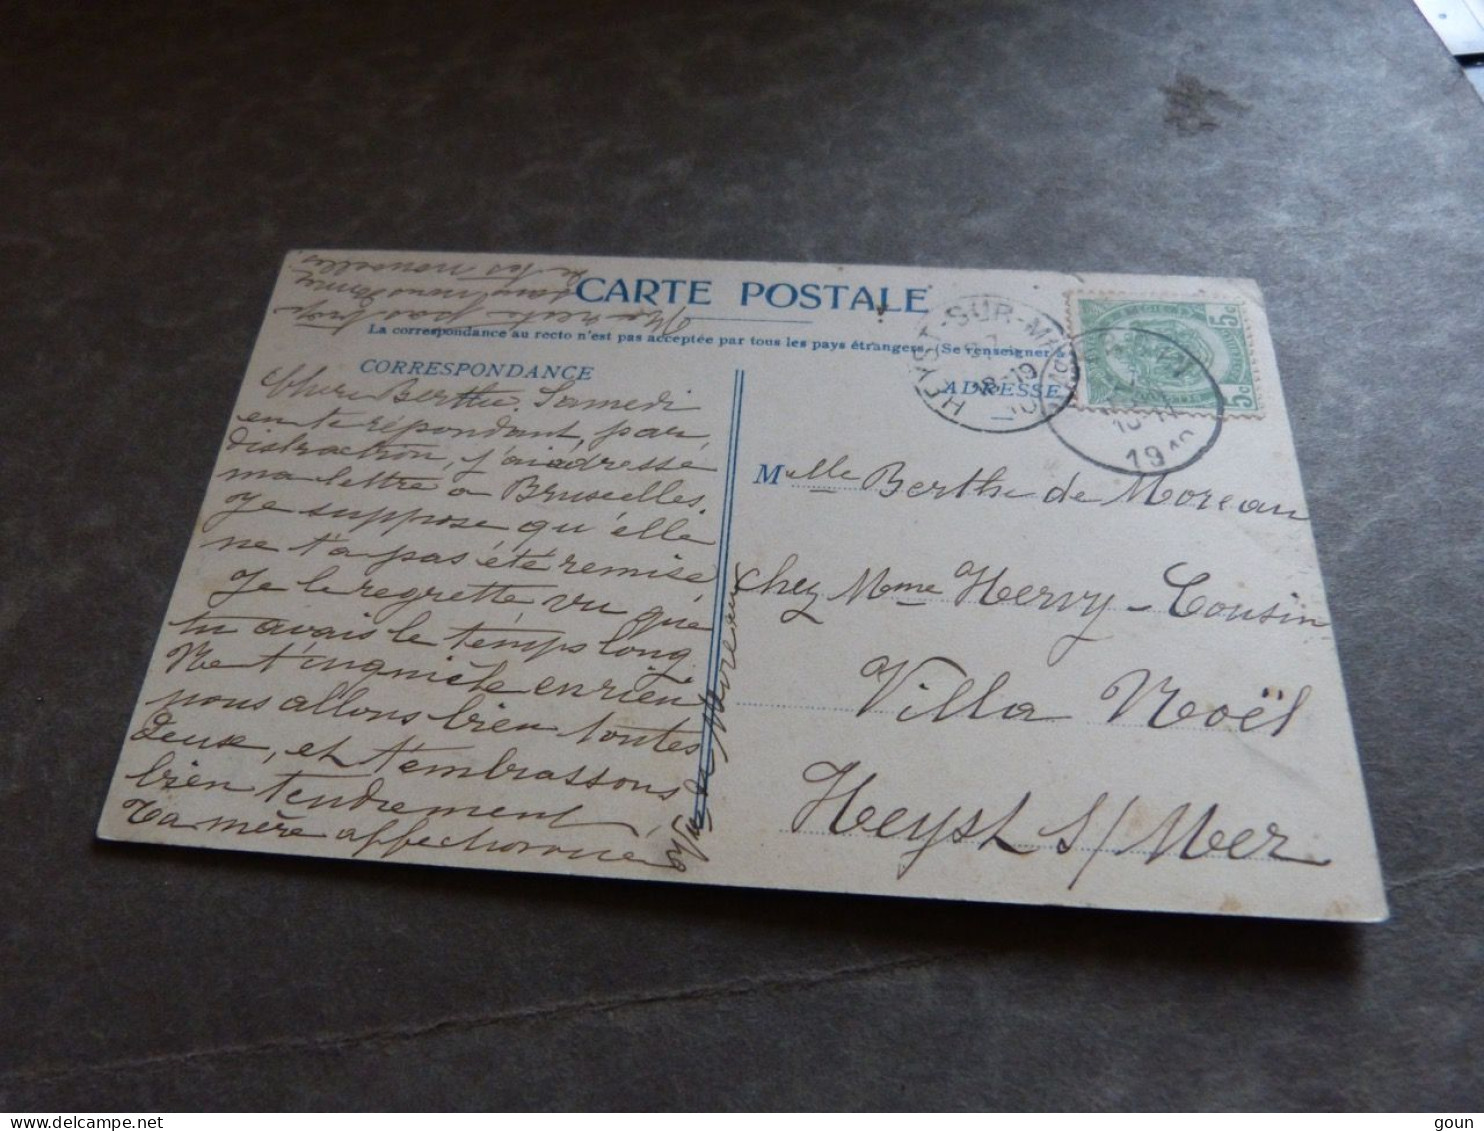 CARTE POSTALE
La correspondance au recto n'est pas acceptée par tous les pays étrangers. (Se renseigner à
CORRESPONDANCE
ADRESSE
HEYST-SUR-M
18-19
5c
5c
Chère Berthe. Samedi
en te répondant, par
distraction, j'ai adressé
ma lettre à Bruxelles.
Je suppose qu'elle
ne t'a pas été remise
Je le regrette vu que
tu avais le temps long
Ne t'inquiète en rien
nous allons bien toutes
deux, et t'embrassons
bien tendrement,
Ta mère affectionnée
de Moreau
Ne reste pas trop
sans nous donner
de tes nouvelles
Mlle Berthe de Moreau
chez Mme Hervy-Cousin
Villa Noël
Heyst s/Mer
goun
www.delcampe.net